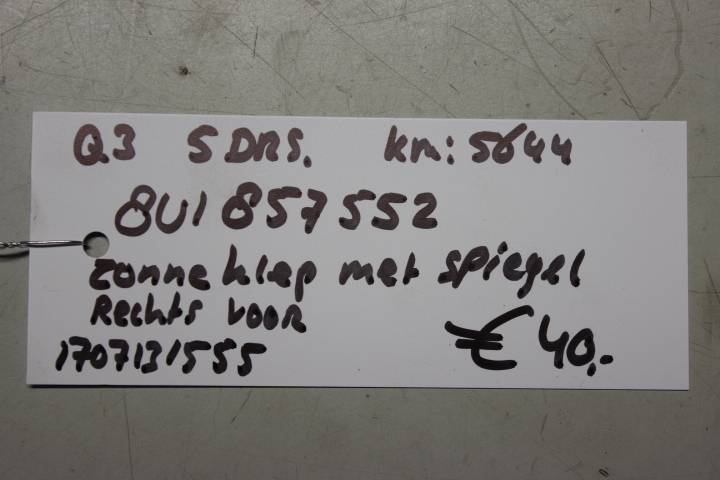 Q3 5DRS. km: 5644
8U1 857552
zonneklep met spiegel
Rechts voor
1707131555 € 40,-